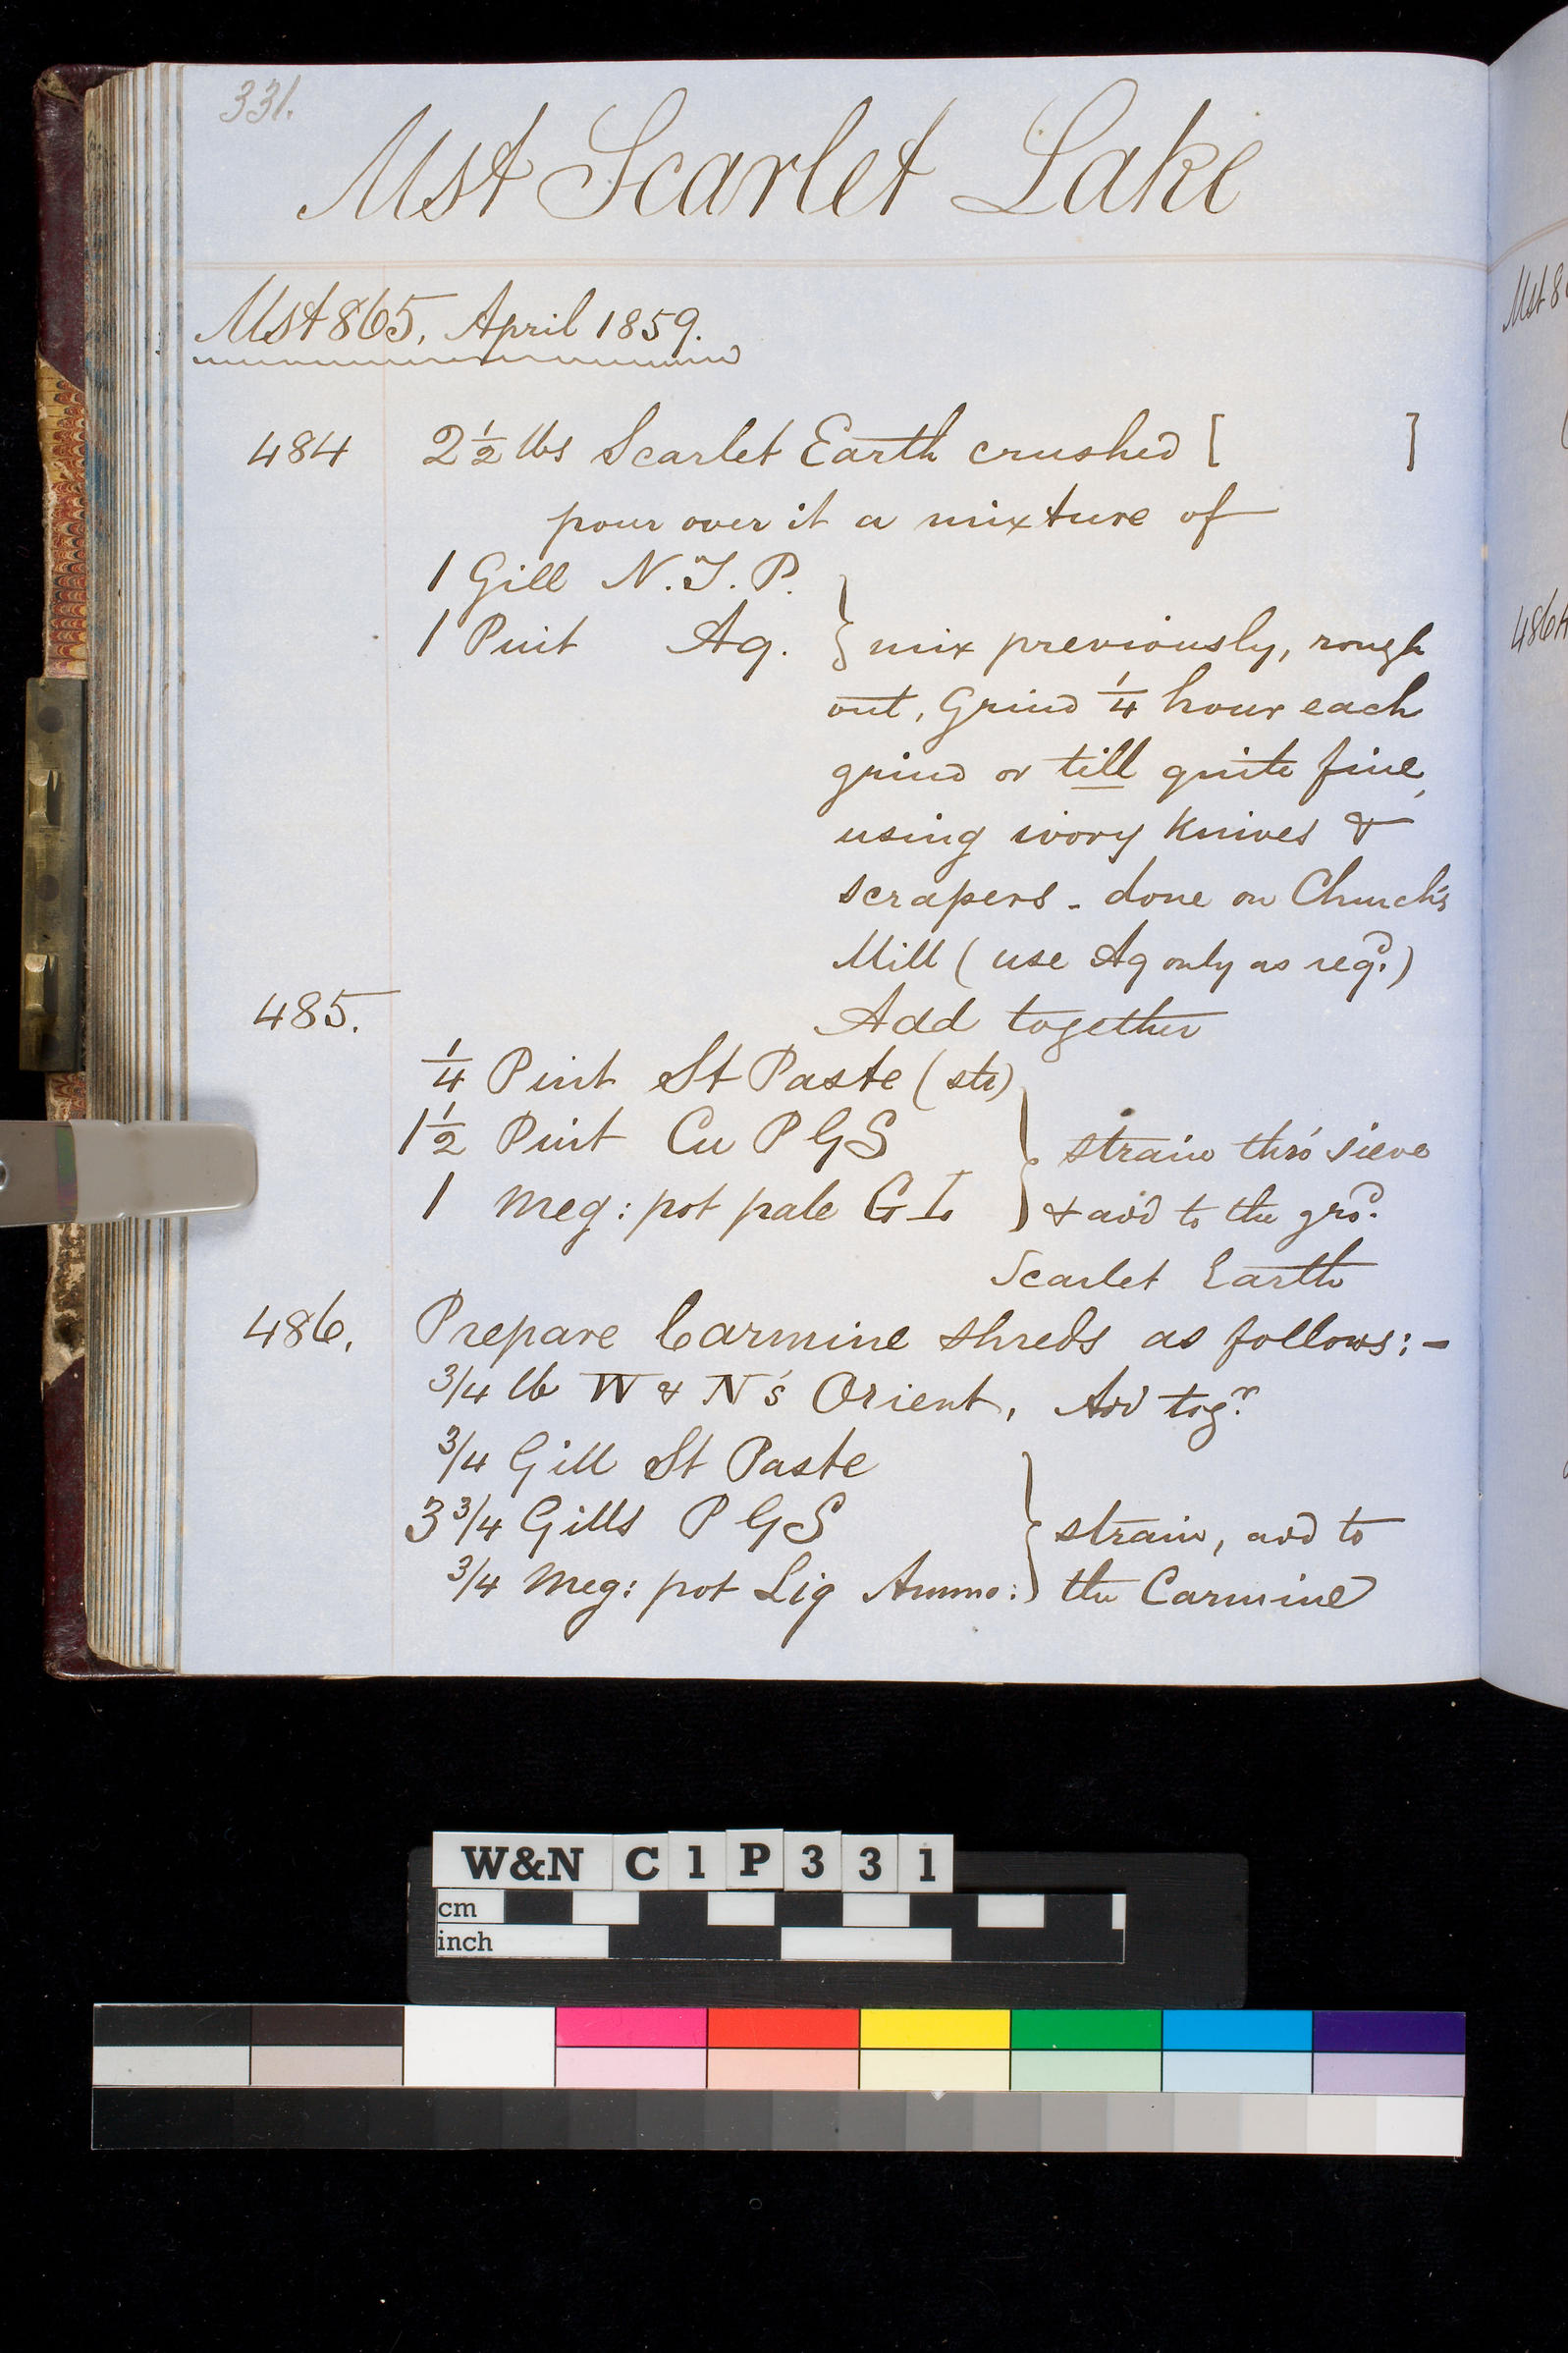 331.
Mst Scarlet Lake
Mst 865, April 1859.
484 2½ lbs Scarlet Earth crushed [ ]
pour over it a mixture of
1 Gill N.T.P.
1 Pint Aq. } mix previously, rough
out, Grind ¼ hour each
grind or till quite fine,
using ivory knives &
scrapers - done on Church's
Mill (use Aq only as reqd.)
485. Add together
¼ Pint St Paste (str)
1½ Pint Cu P G S } strain thro' sieve
1 Meg: pot pale G L } & add to the grd.
Scarlet Earth
486. Prepare Carmine shreds as follows:-
3/4 lb W & N's Orient, Add togr.
3/4 Gill St Paste
3 3/4 Gills P G S } strain, add to
3/4 Meg: pot Liq Ammo: } the Carmine
Mst 8
486
W&N C1P331
cm
inch